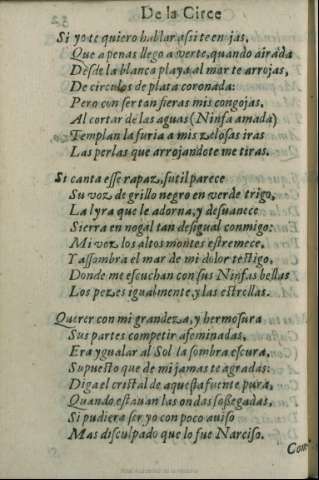 De la Circe
Si yo te quiero hablar assi te enojas,
Que a penas llego a verte, quando airada
Desde la blanca playa al mar te arrojas,
De circulos de plata coronada:
Pero con ser tan fieras mis congojas,
Al cortar de las aguas (Ninfa amada)
Templan la furia a mis zelosas iras
Las perlas que arrojandote me tiras.
Si canta esse rapaz, sutil parece
Su voz de grillo negro en verde trigo,
La lyra que le adorna, y desuanece
Sierra en nogal tan desigual conmigo:
Mi voz los altos montes estremece,
Y assombra el mar de mi dolor testigo,
Donde me escuchan con sus Ninfas bellas
Los pezes igualmente, y las estrellas.
Querer con mi grandeza, y hermosura
Sus partes competir afeminadas,
Era ygualar al Sol la sombra escura,
Supuesto que de mi jamas te agradas:
Diga el cristal de aquesta fuente pura,
Quando estauan las ondas sossegadas,
Si pudiera ser yo con poco auiso
Mas disculpado que lo fue Narciso.
Real Academia de la Historia